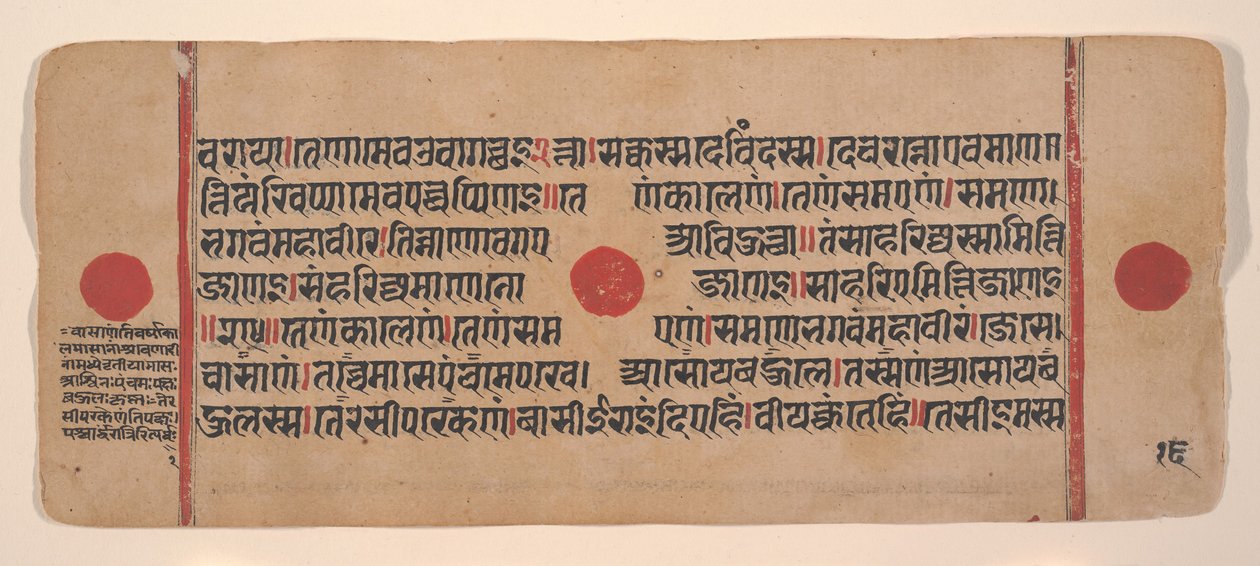 वराया।तेणामेवउवागच्छइ२त्ता।सक्कस्सदेविंदस्स।देवरन्नोएवमाणत्
तियंखिप्पामेवपच्चप्पिणइ॥ते णंकालेणं।तेणंसमएणं।समणे
भगवंमहावीरे।तिन्नाणोवगए आविहुत्था॥तंसाहरिज्जिस्सामित्ति
जाणइ।संहरिज्जमाणेनो जाणइ॥साहरिएमित्तिजाणइ
॥२५॥तेणंकालेणं।तेणंसम एणं।समणेभगवंमहावीरे।जेसे
वासाणं।तच्चेमासेपंचमेपरखे। आसोयबहुले।तस्सणंआसोयब
हुलस्स।तेरसीपरकेणं।बासीईराइंदिएहिं।वीयक्कंतेहिं॥तेसीइमस्स
=वासाणंतिवर्षाका
लमासानांश्रावणादी
नांमध्येतृतीयोमासः
आश्विनःपंचमःपक्षः
बहुलःकृष्णःतेर
सीपरकेणंतिपक्षः।
पश्चार्द्धरात्रिरित्यर्थः
२
१६